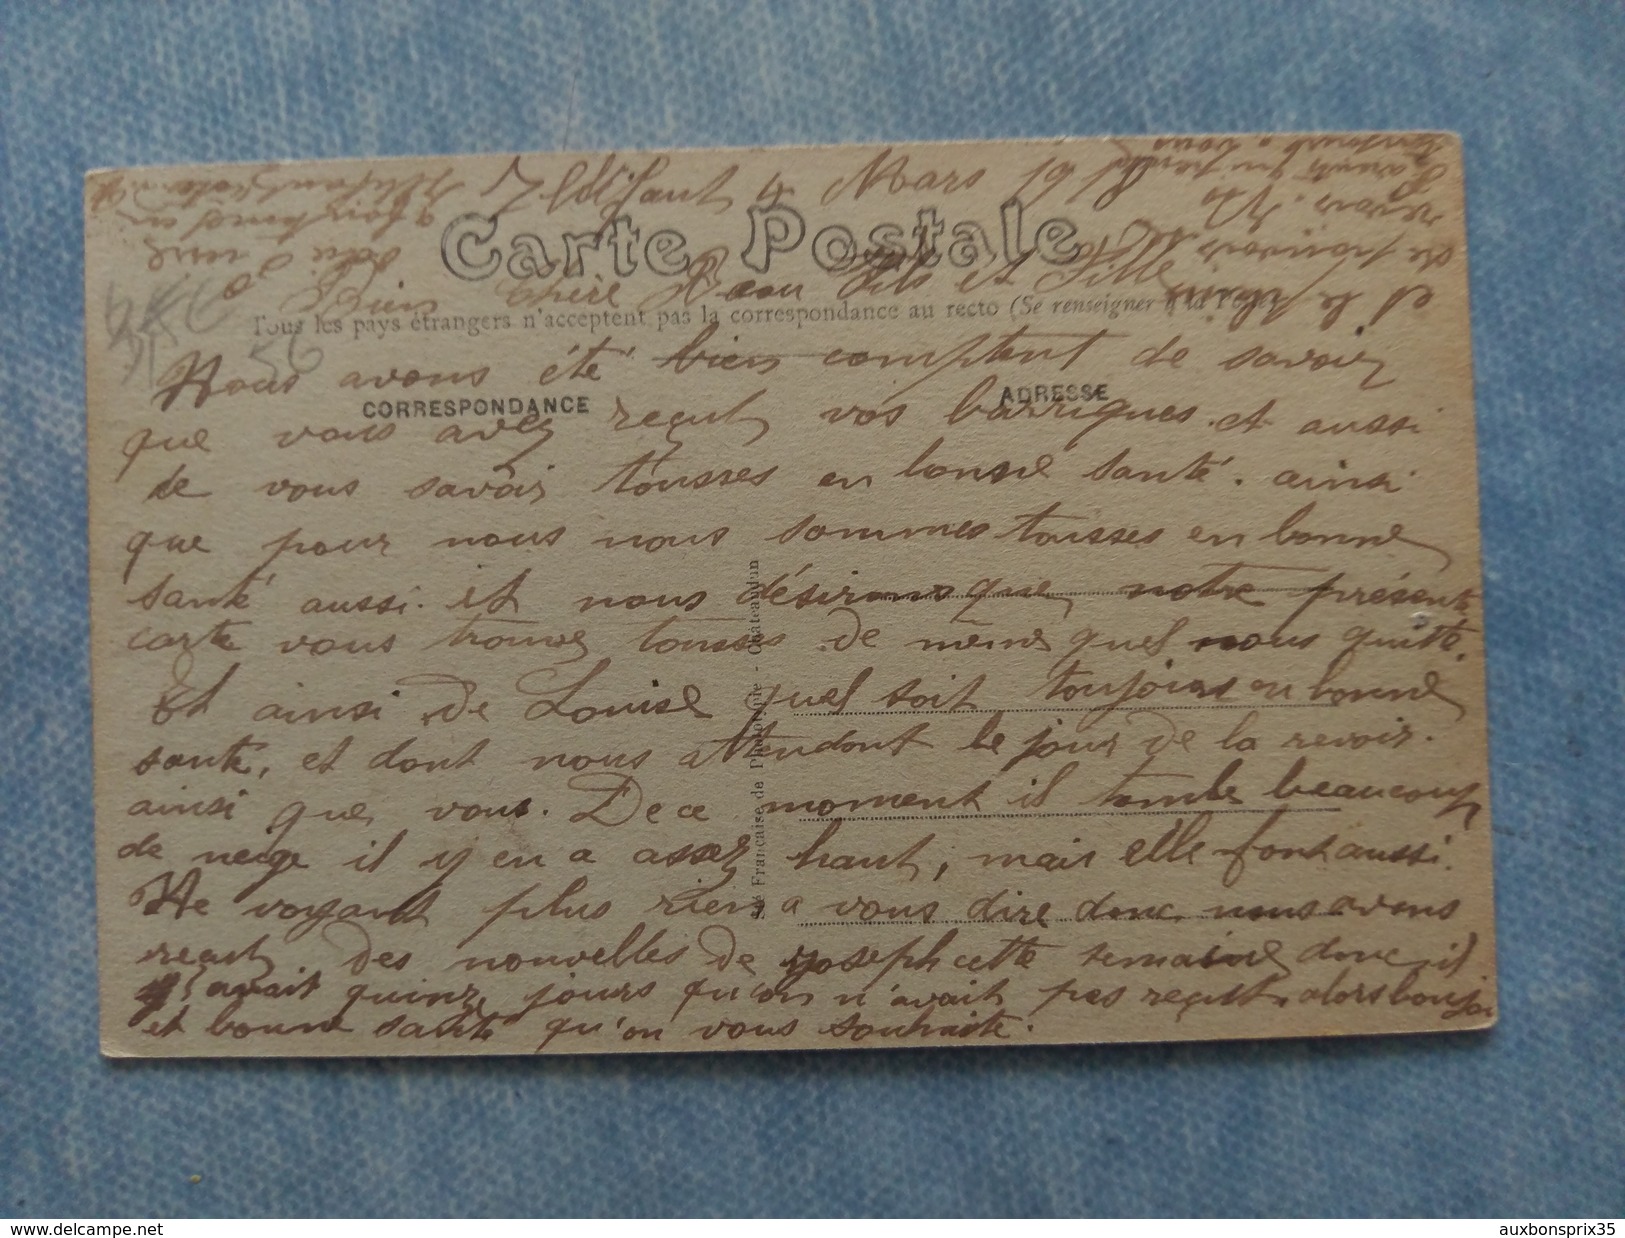 4 Mars 19
Carte Postale
Bien chère Fils et Fille
Tous les pays étrangers n'acceptent pas la correspondance au recto (Se renseigner à la Poste
Nous avons été bien comptent de savoir
CORRESPONDANCE
ADRESSE
que vous avez reçut vos barriques. et aussi
de vous savoir tousses en bonne santé. ainsi
que pour nous nous sommes tousses en bonne
santé aussi. et nous désirons que notre présente
carte vous trouve tousses de même quel nous quitte.
Et ainsi de Louise quel soit toujours en bonne
santé, et dont nous attendont le jour de la revoir.
ainsi que vous. De ce moment il tombe beaucoup
de neige il y en a assez haut, mais elle font aussi.
Ne voyant plus rien a vous dire donc nous avons
reçut des nouvelles de yoseph cette semaine donc il
y avait quinze jours qu'on n'avait pas reçut. alors bonjour
et bonne santé qu'on vous souhaite.
Sté Française de Phototypie - Châteaudun
et le
revoir.
www.delcampe.net
auxbonsprix35